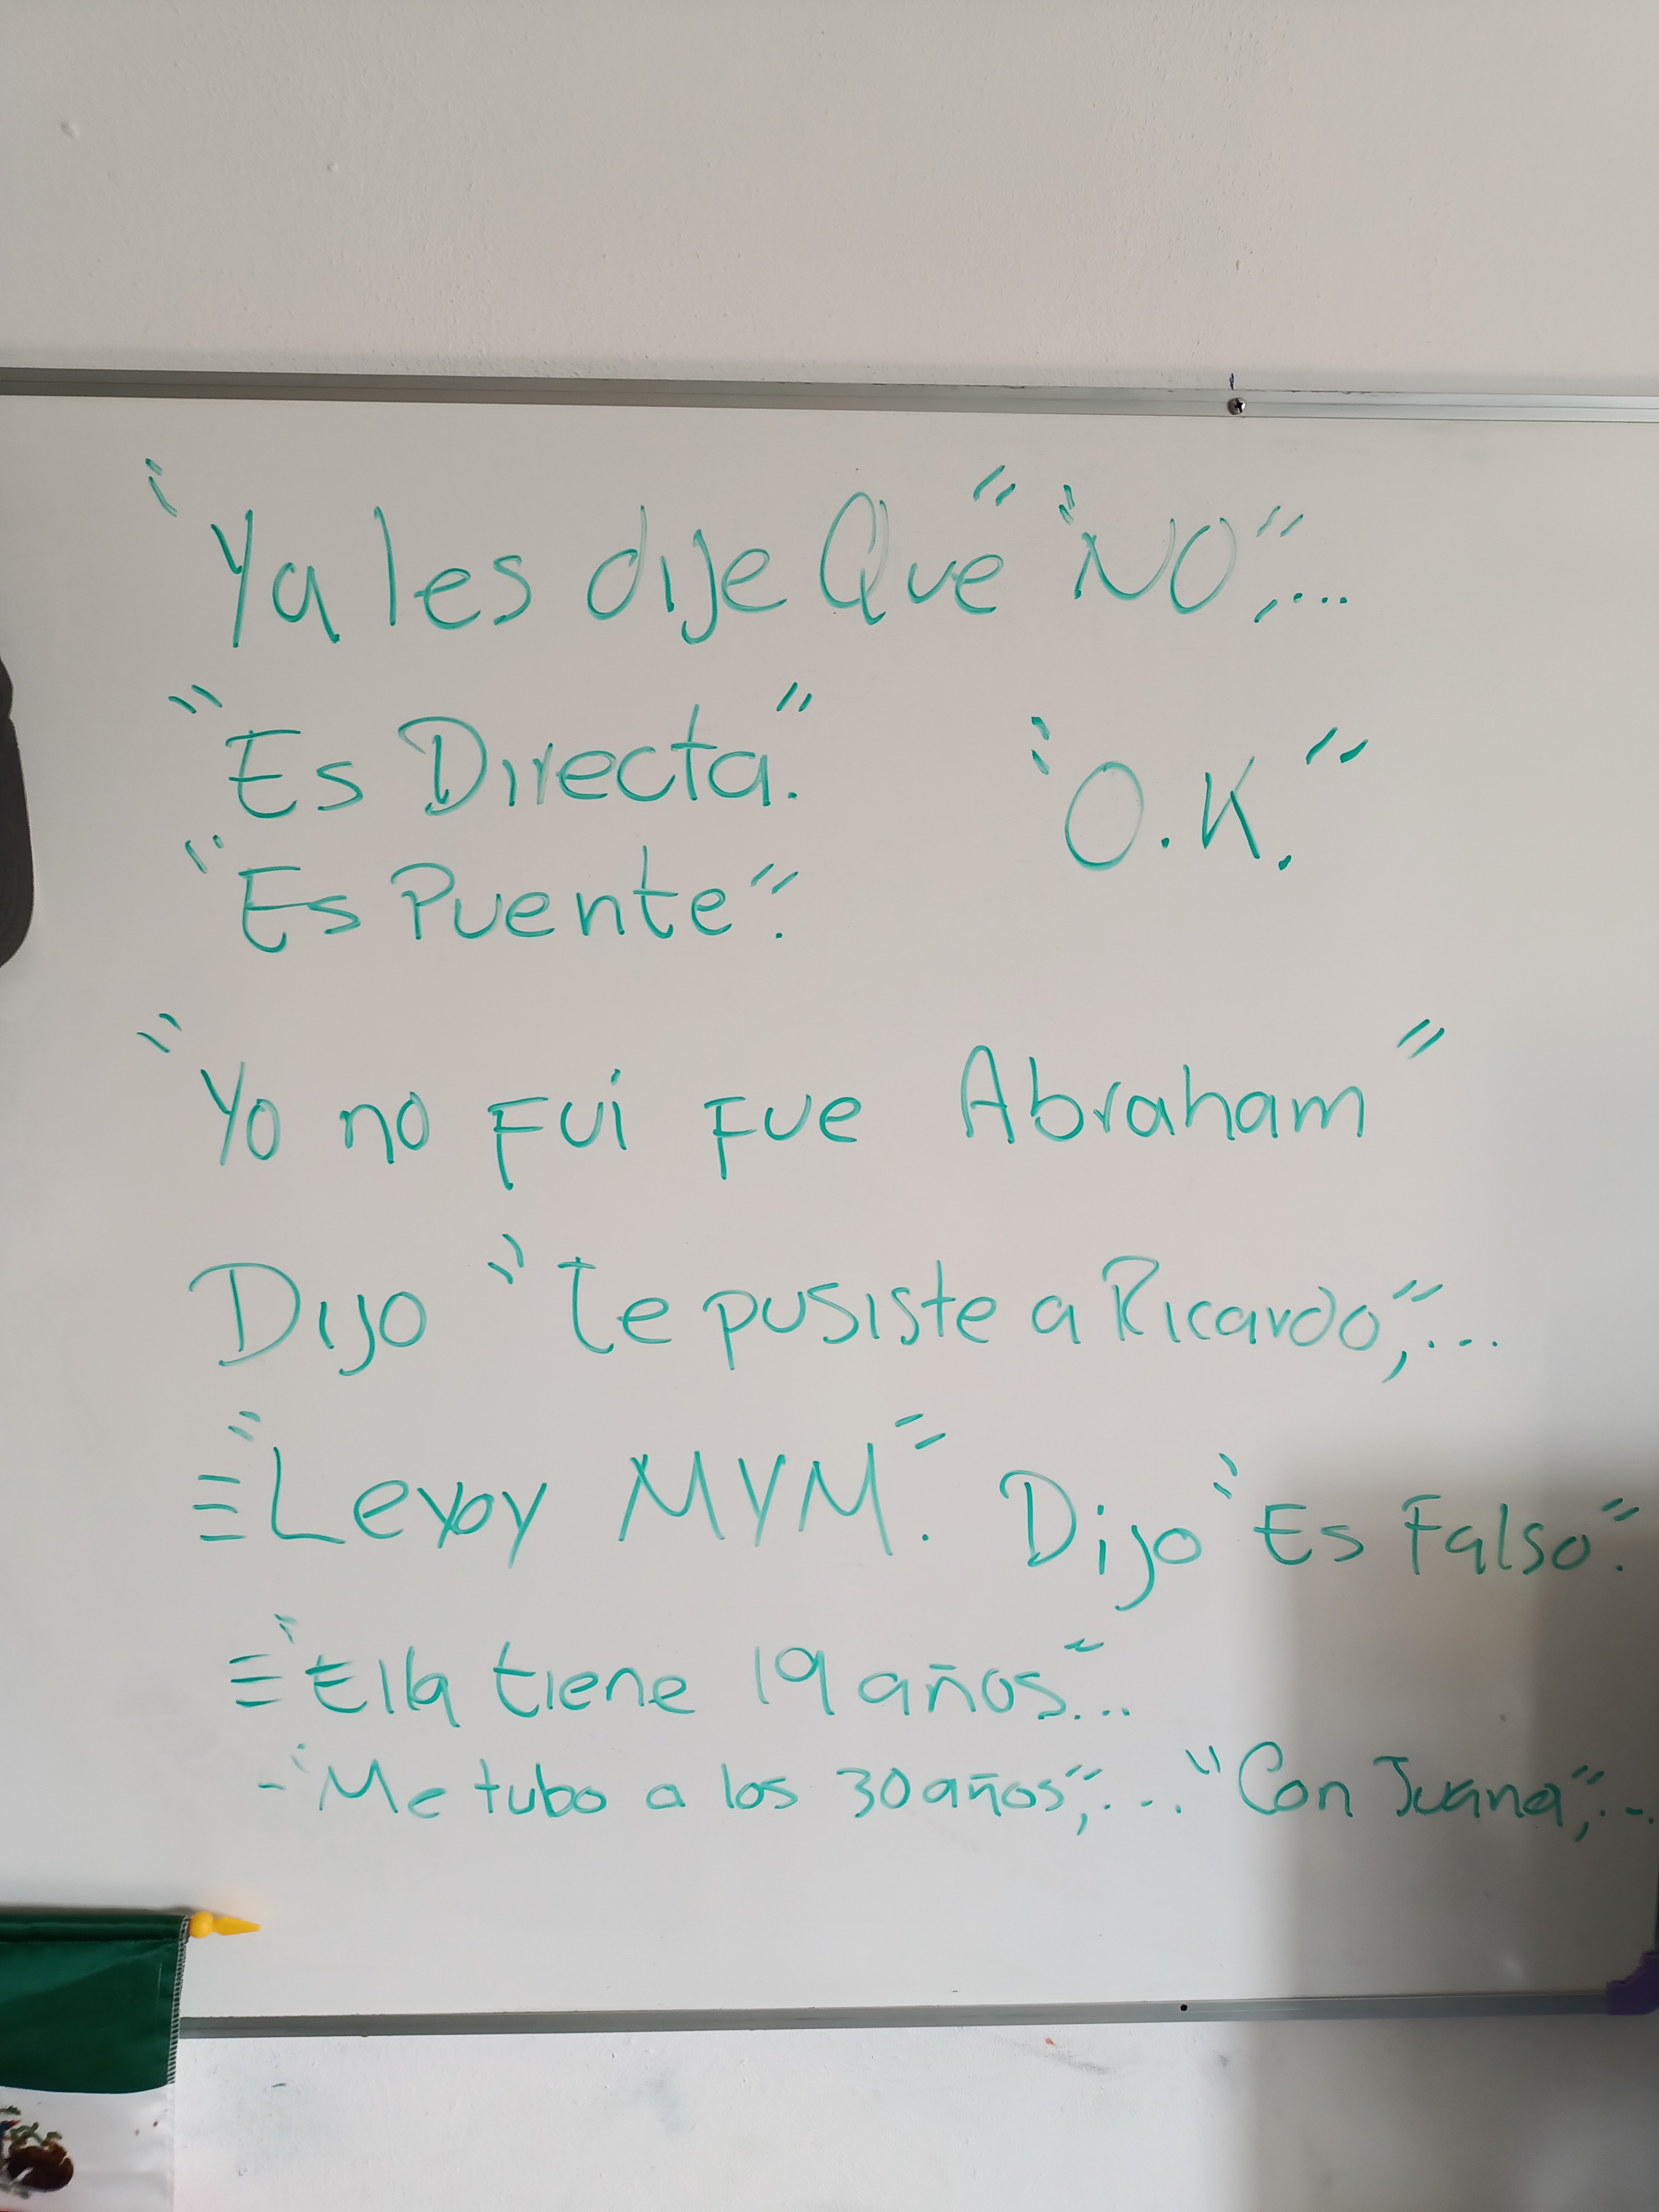 "Ya les dije Que" "NO",...
"Es Directa."
"O.K."
"Es Puente".
"Yo no Fui Fue Abraham"
Dijo "Te pusiste a Ricardo",...
≡"Leyoy MVM". Dijo "Es Falso".
≡"Ella tiene 19 años"...
-"Me tubo a los 30 años",... "Con Juana",...